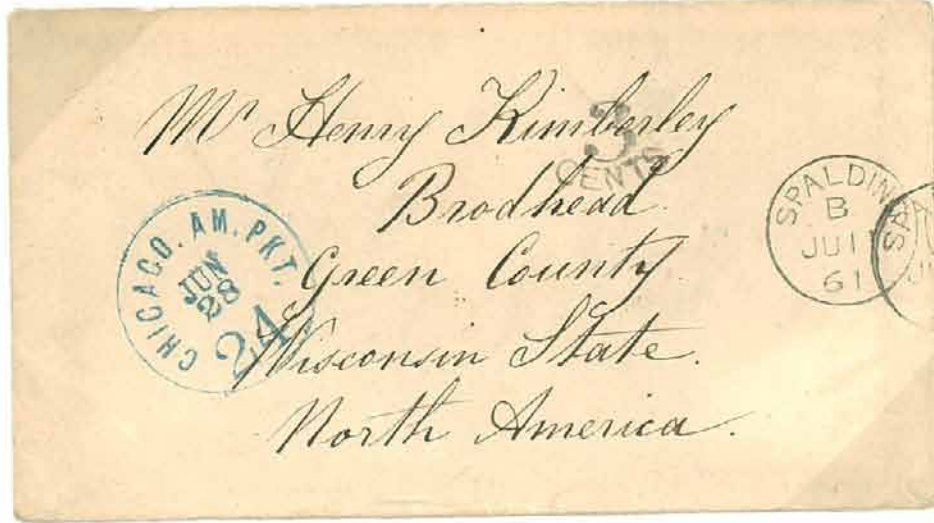 Mr Henry Kimberley
3
CENTS
Brodhead
Green County
Wisconsin State.
North America.
CHICAGO. AM. PKT.
JUN
28
24
SPALDING
B
JU 11
61
SPA
JU